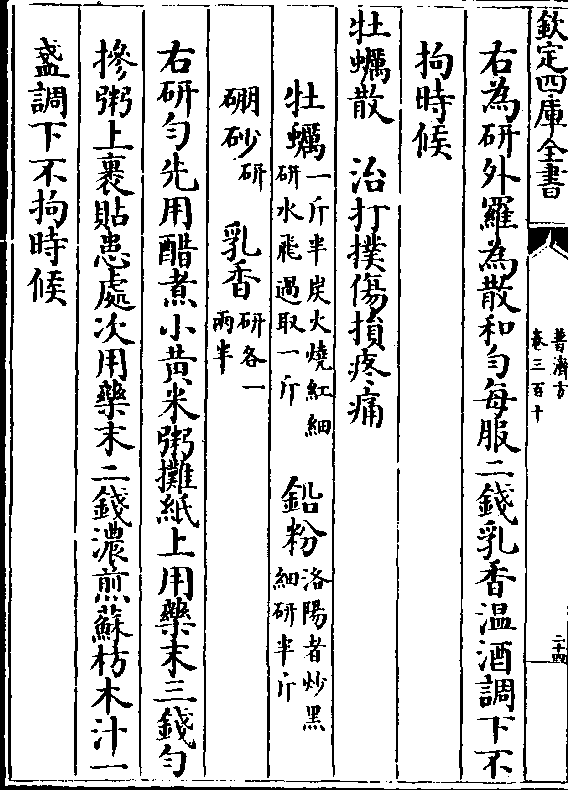 欽定四庫全書
普濟方
卷三百十
二十四
右為研外羅為散和勻每服二錢乳香温酒調下不
拘時候
牡蠣散　治打撲傷損疼痛
牡蠣一斤半炭火燒紅細研水飛過取一斤　鉛粉洛陽者炒黑細研半斤
硼砂研　乳香研各一兩半
右研勻先用醋煮小黄米粥攤紙上用藥末三錢勻
摻粥上裹貼患處次用藥末二錢濃煎蘇枋木汁一
盞調下不拘時候